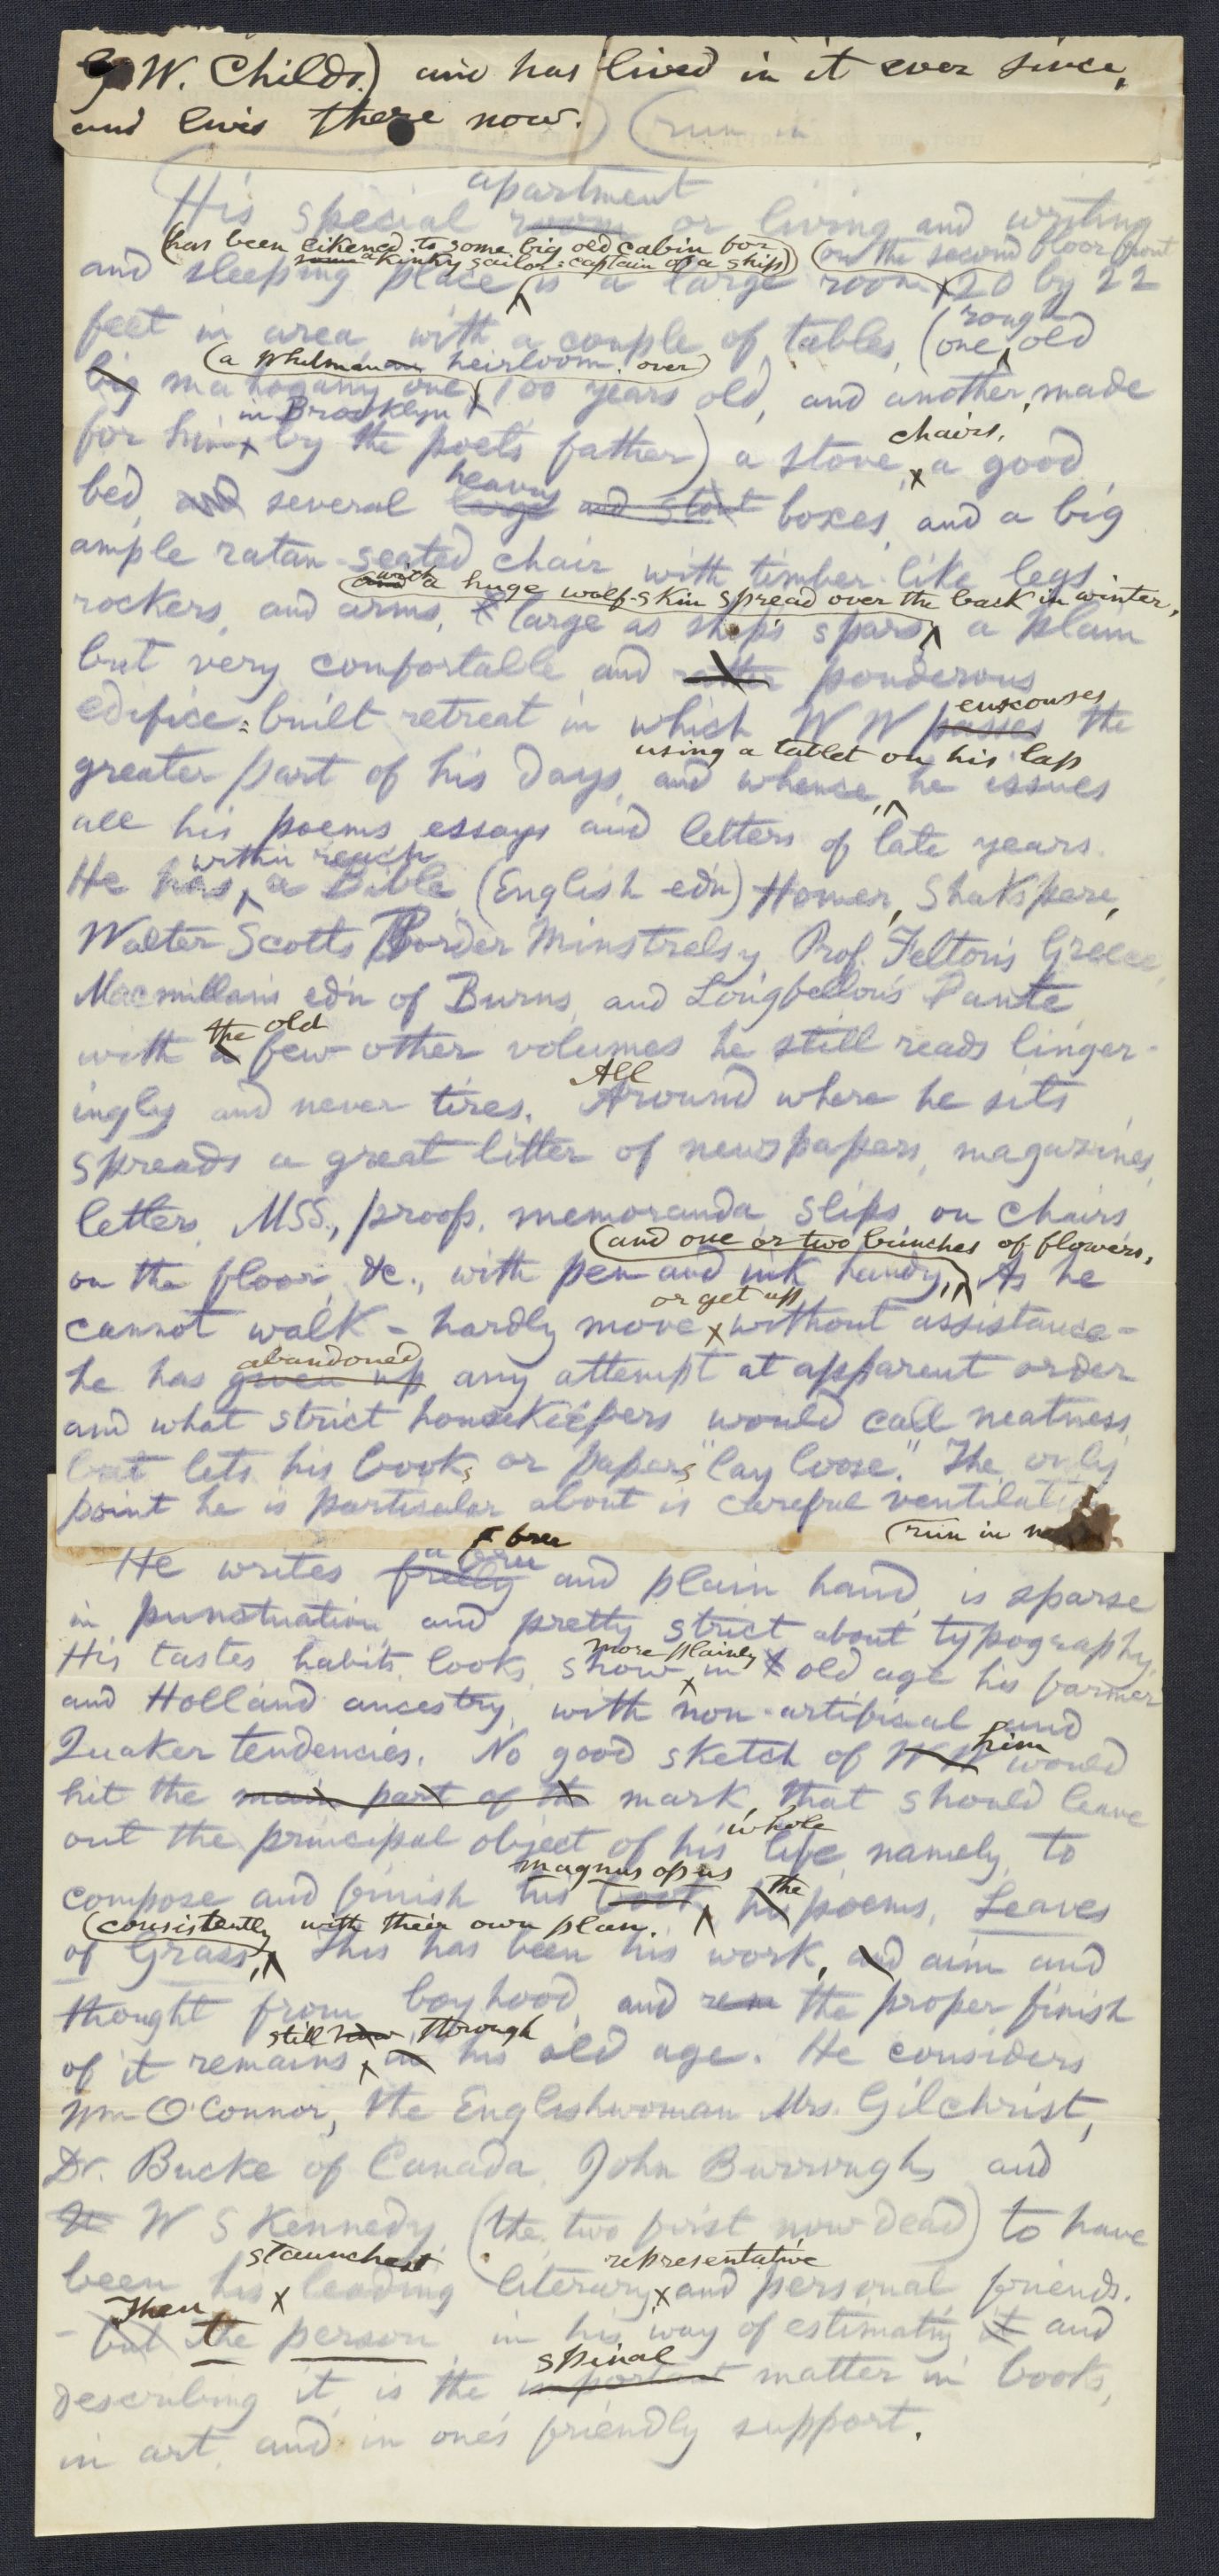 G W. Childs.) and has lived in it ever since,
and lives there now.) (run in
apartment
His special room or living and writing
(has been likened to some big old cabin for
some a kinky sailor-captain of a ship) (on the second floor front
and sleeping place is a large room 20 by 22
feet in area with a couple of tables, (one old
rough
(a Whitman heirloom over)
big mahogany one 100 years old, and another, made
in Brooklyn
for him by the poet's father) a stove, a good
chairs,
heavy
bed, and several large and stout boxes, and a big
ample ratan-seated chair with timber-like legs
(and with a huge wolf-skin spread over the back in winter,
rockers, and arms, large as ship's spars, a plain
but very comfortable and rather ponderous
edifice-built retreat in which W W passes the
ensconses
using a tablet on his lap
greater part of his days, and whence, he issues
all his poems essays and letters of late years.
within reach
He has, a Bible (English edn) Homer, Shakspere,
Walter Scott's Border Minstrelsy, Prof. Felton's Greece,
Macmillan's edn of Burns, and Longfellow's Dante
the old
with a few other volumes he still reads linger-
All
ingly and never tires. Around where he sits
spreads a great litter of newspapers, magazines,
letters, MSS., proofs, memoranda, slips, on chairs
(and one or two bunches of flowers,
on the floor, &c., with pen and ink handy, As he
or get up
cannot walk - hardly move without assistance -
abandoned
he has given up any attempt at apparent order
and what strict housekeepers would call neatness,
but lets his books or papers "lay loose." The only
point he is particular about is careful ventilation
(run in
free
a free
He writes freely and plain hand, is sparse
in punctuation, and pretty strict about typography.
more plainly
His tastes habits, looks, show in old age his farmer
and Holland ancestry, with non-artificial and
him
Quaker tendencies. No good sketch of W W would
hit the main part of the mark, that should leave
whole
out the principal object of his life, namely, to
magnus opus the
compose and finish his book, his poems, Leaves
(consistently with their own plan.
of Grass, This has been his work, and aim and
thought from boyhood, and the proper finish
still now through
of it remains in his old age. He considers
Wm O'Connor, the Englishwoman Mrs. Gilchrist,
Dr. Bucke of Canada, John Burroughs and
W S Kennedy, (the two first now dead) to have
staunchest representative
been his leading literary and personal friends.
Then
- but the person, in his way of estimating it and
spinal
describing it, is the important matter in books,
in art, and in one's friendly support.